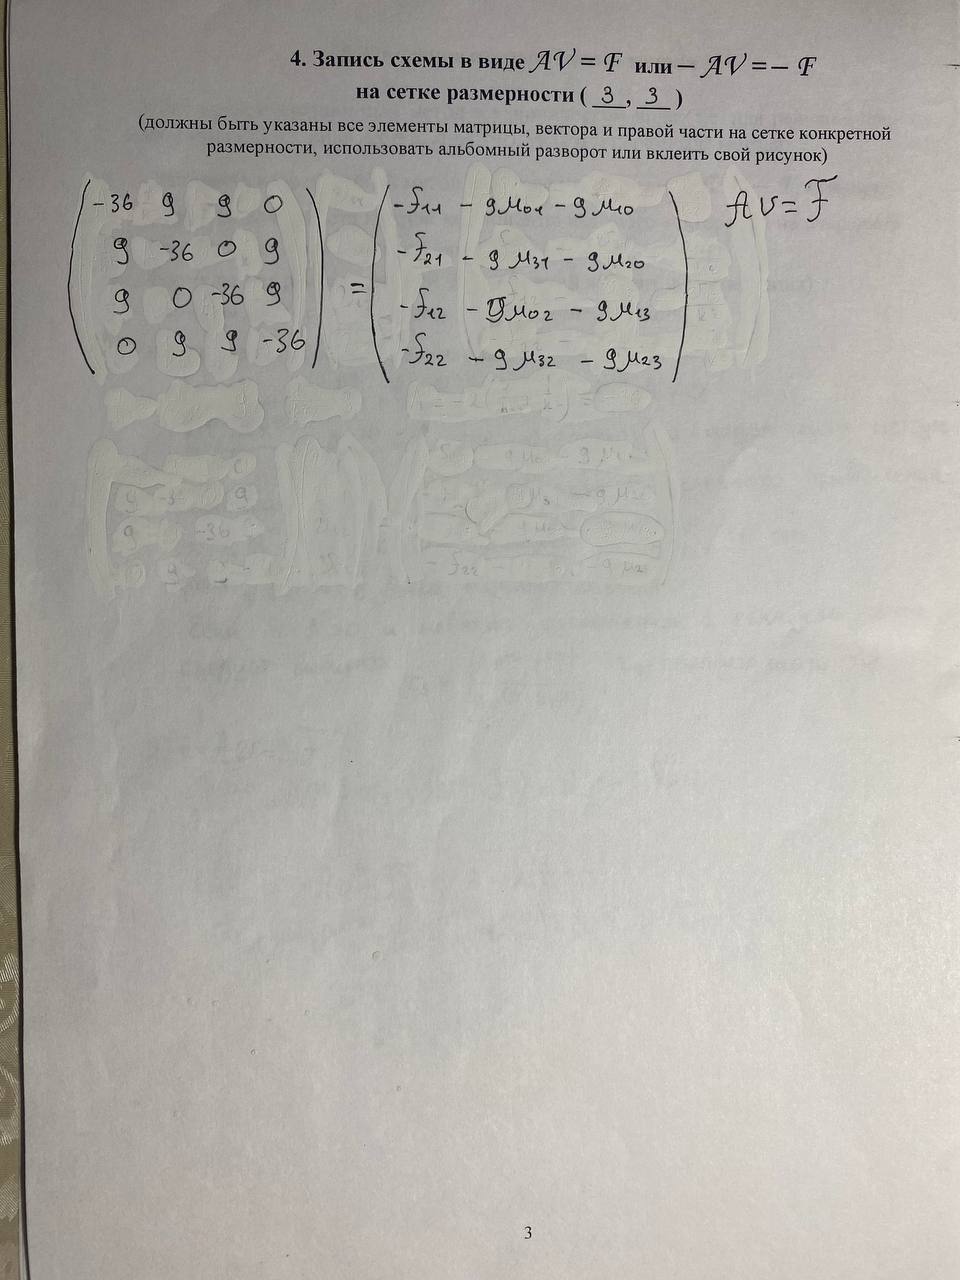 4. Запись схемы в виде AV = F или – AV = – F
на сетке размерности ( 3 , 3 )
(должны быть указаны все элементы матрицы, вектора и правой части на сетке конкретной
размерности, использовать альбомный разворот или вклеить свой рисунок)
-36 9 9 0 = -f₁₁ - 9μ₀₁ - 9μ₁₀ AV = F
9 -36 0 9 -f₂₁ - 9μ₃₁ - 9μ₂₀
9 0 -36 9 -f₁₂ - 9μ₀₂ - 9μ₁₃
0 9 9 -36 -f₂₂ - 9μ₃₂ - 9μ₂₃
3